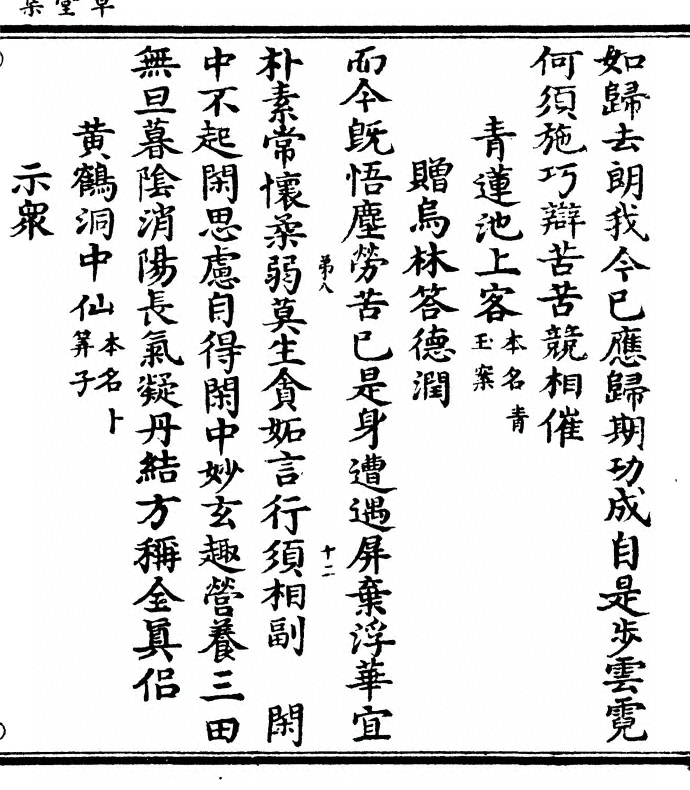 如歸去朗我今已應歸期功成自是步雲霓
何須施巧辯苦苦競相催
青蓮池上客本名青玉案
贈烏林答德潤
而今既悟塵勞苦已是身遭遇屏棄浮華宜
第八
十二
朴素常懷柔弱莫生貪妬言行須相副 閑
中不起閑思慮自得閑中妙玄趣營養三田
無旦暮陰消陽長氣凝丹結方稱全真侶
黃鶴洞中仙本名卜筭子
示眾